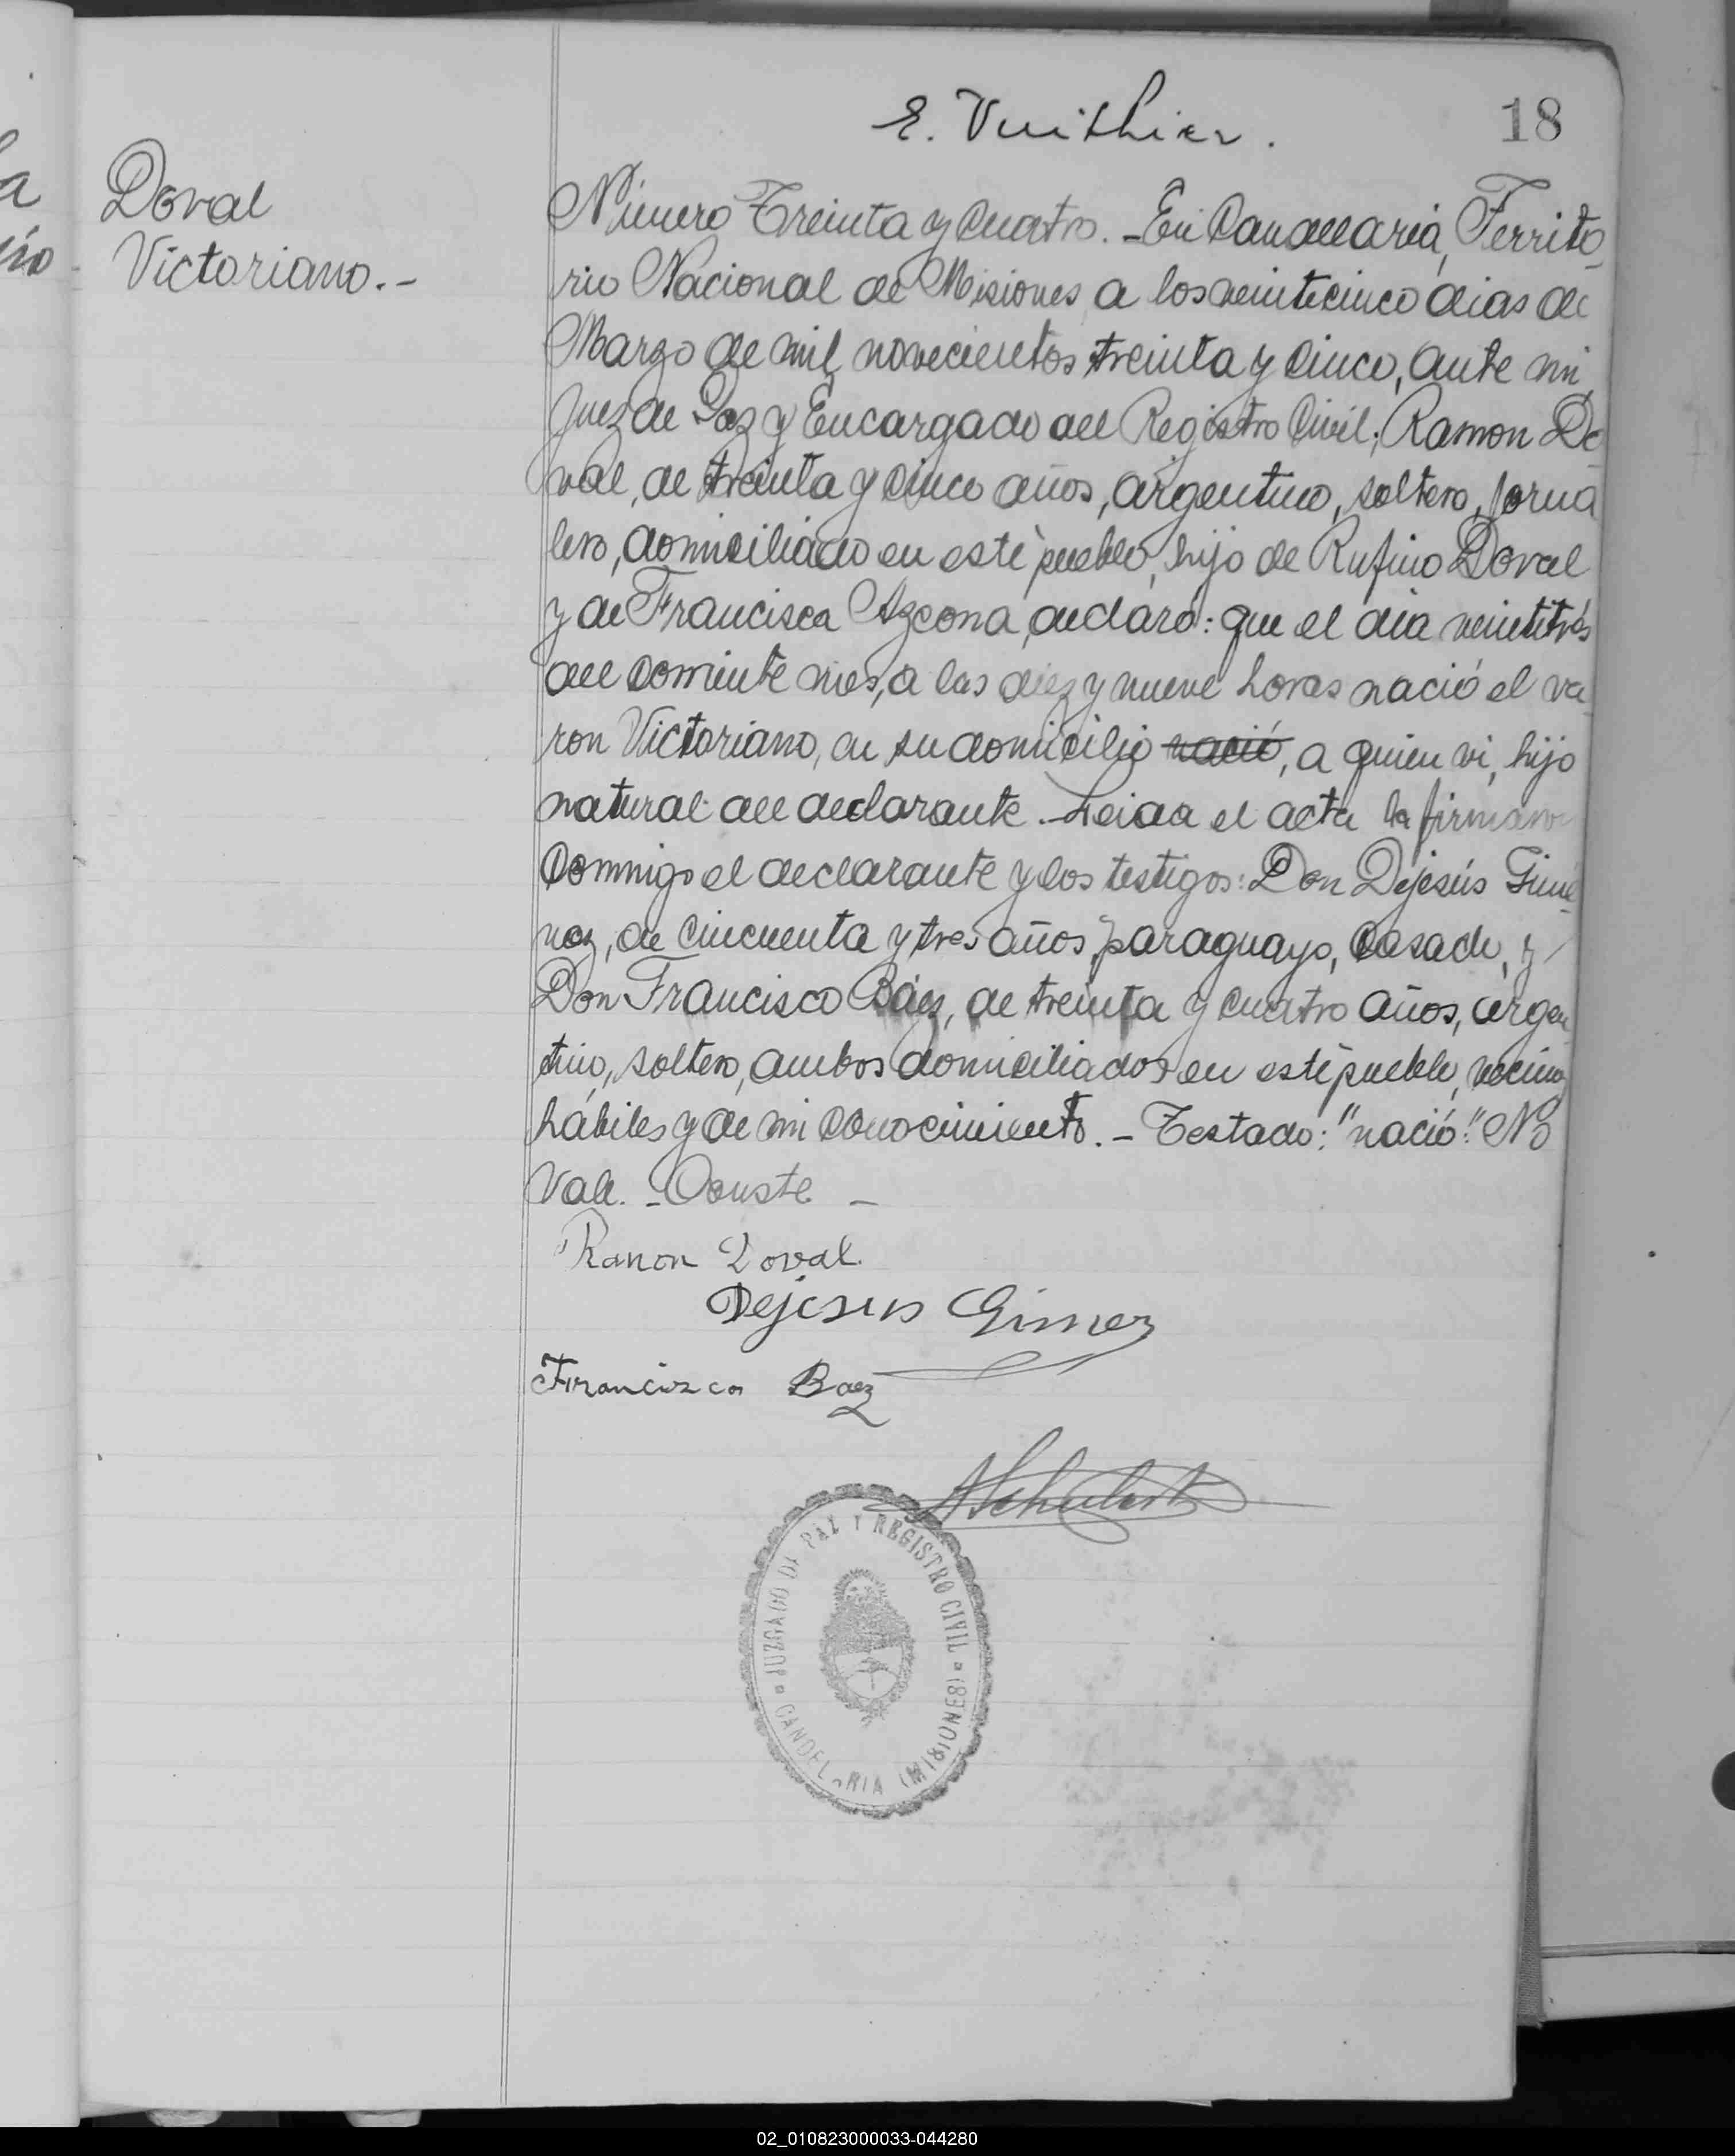 E. Vuithier.
18
Doval
Victoriano.-
Número Treinta y Cuatro. - En Candelaria, Territo
rio Nacional de Misiones, a los veinticinco dias de
Marzo de mil novecientos treinta y cinco, ante mi
Juez de Paz y Encargado del Registro Civil; Ramon Do
val, de treinta y cinco años, argentino, soltero, jorna
lero, domiciliado en esté pueblo, hijo de Rufino Doval
y de Francisca Azcona, declaró: que el dia veintitrés
del corriente mes, a las diez y nueve horas nació el va
ron Victoriano, en su domicilio nació, a quien vi, hijo
natural del declarante. - Leida el acta la firmaron
Conmigo el declarante y los testigos: Don Dejesús Gimé
nez, de cincuenta y tres años, paraguayo, casado, y
Don Francisco Báez, de treinta y cuatro años, argen
tino, soltero, ambos domiciliados en esté pueblo, vecinos
hábiles y de mi conocimiento. - Testado: "nació": No
Vale. - Conste -
Ramon Doval
Dejesus Gimez
Francisco Baez
ASchubert
JUZGADO DE PAZ Y REGISTRO CIVIL
CANDELARIA (MISIONES)
02_010823000033-044280